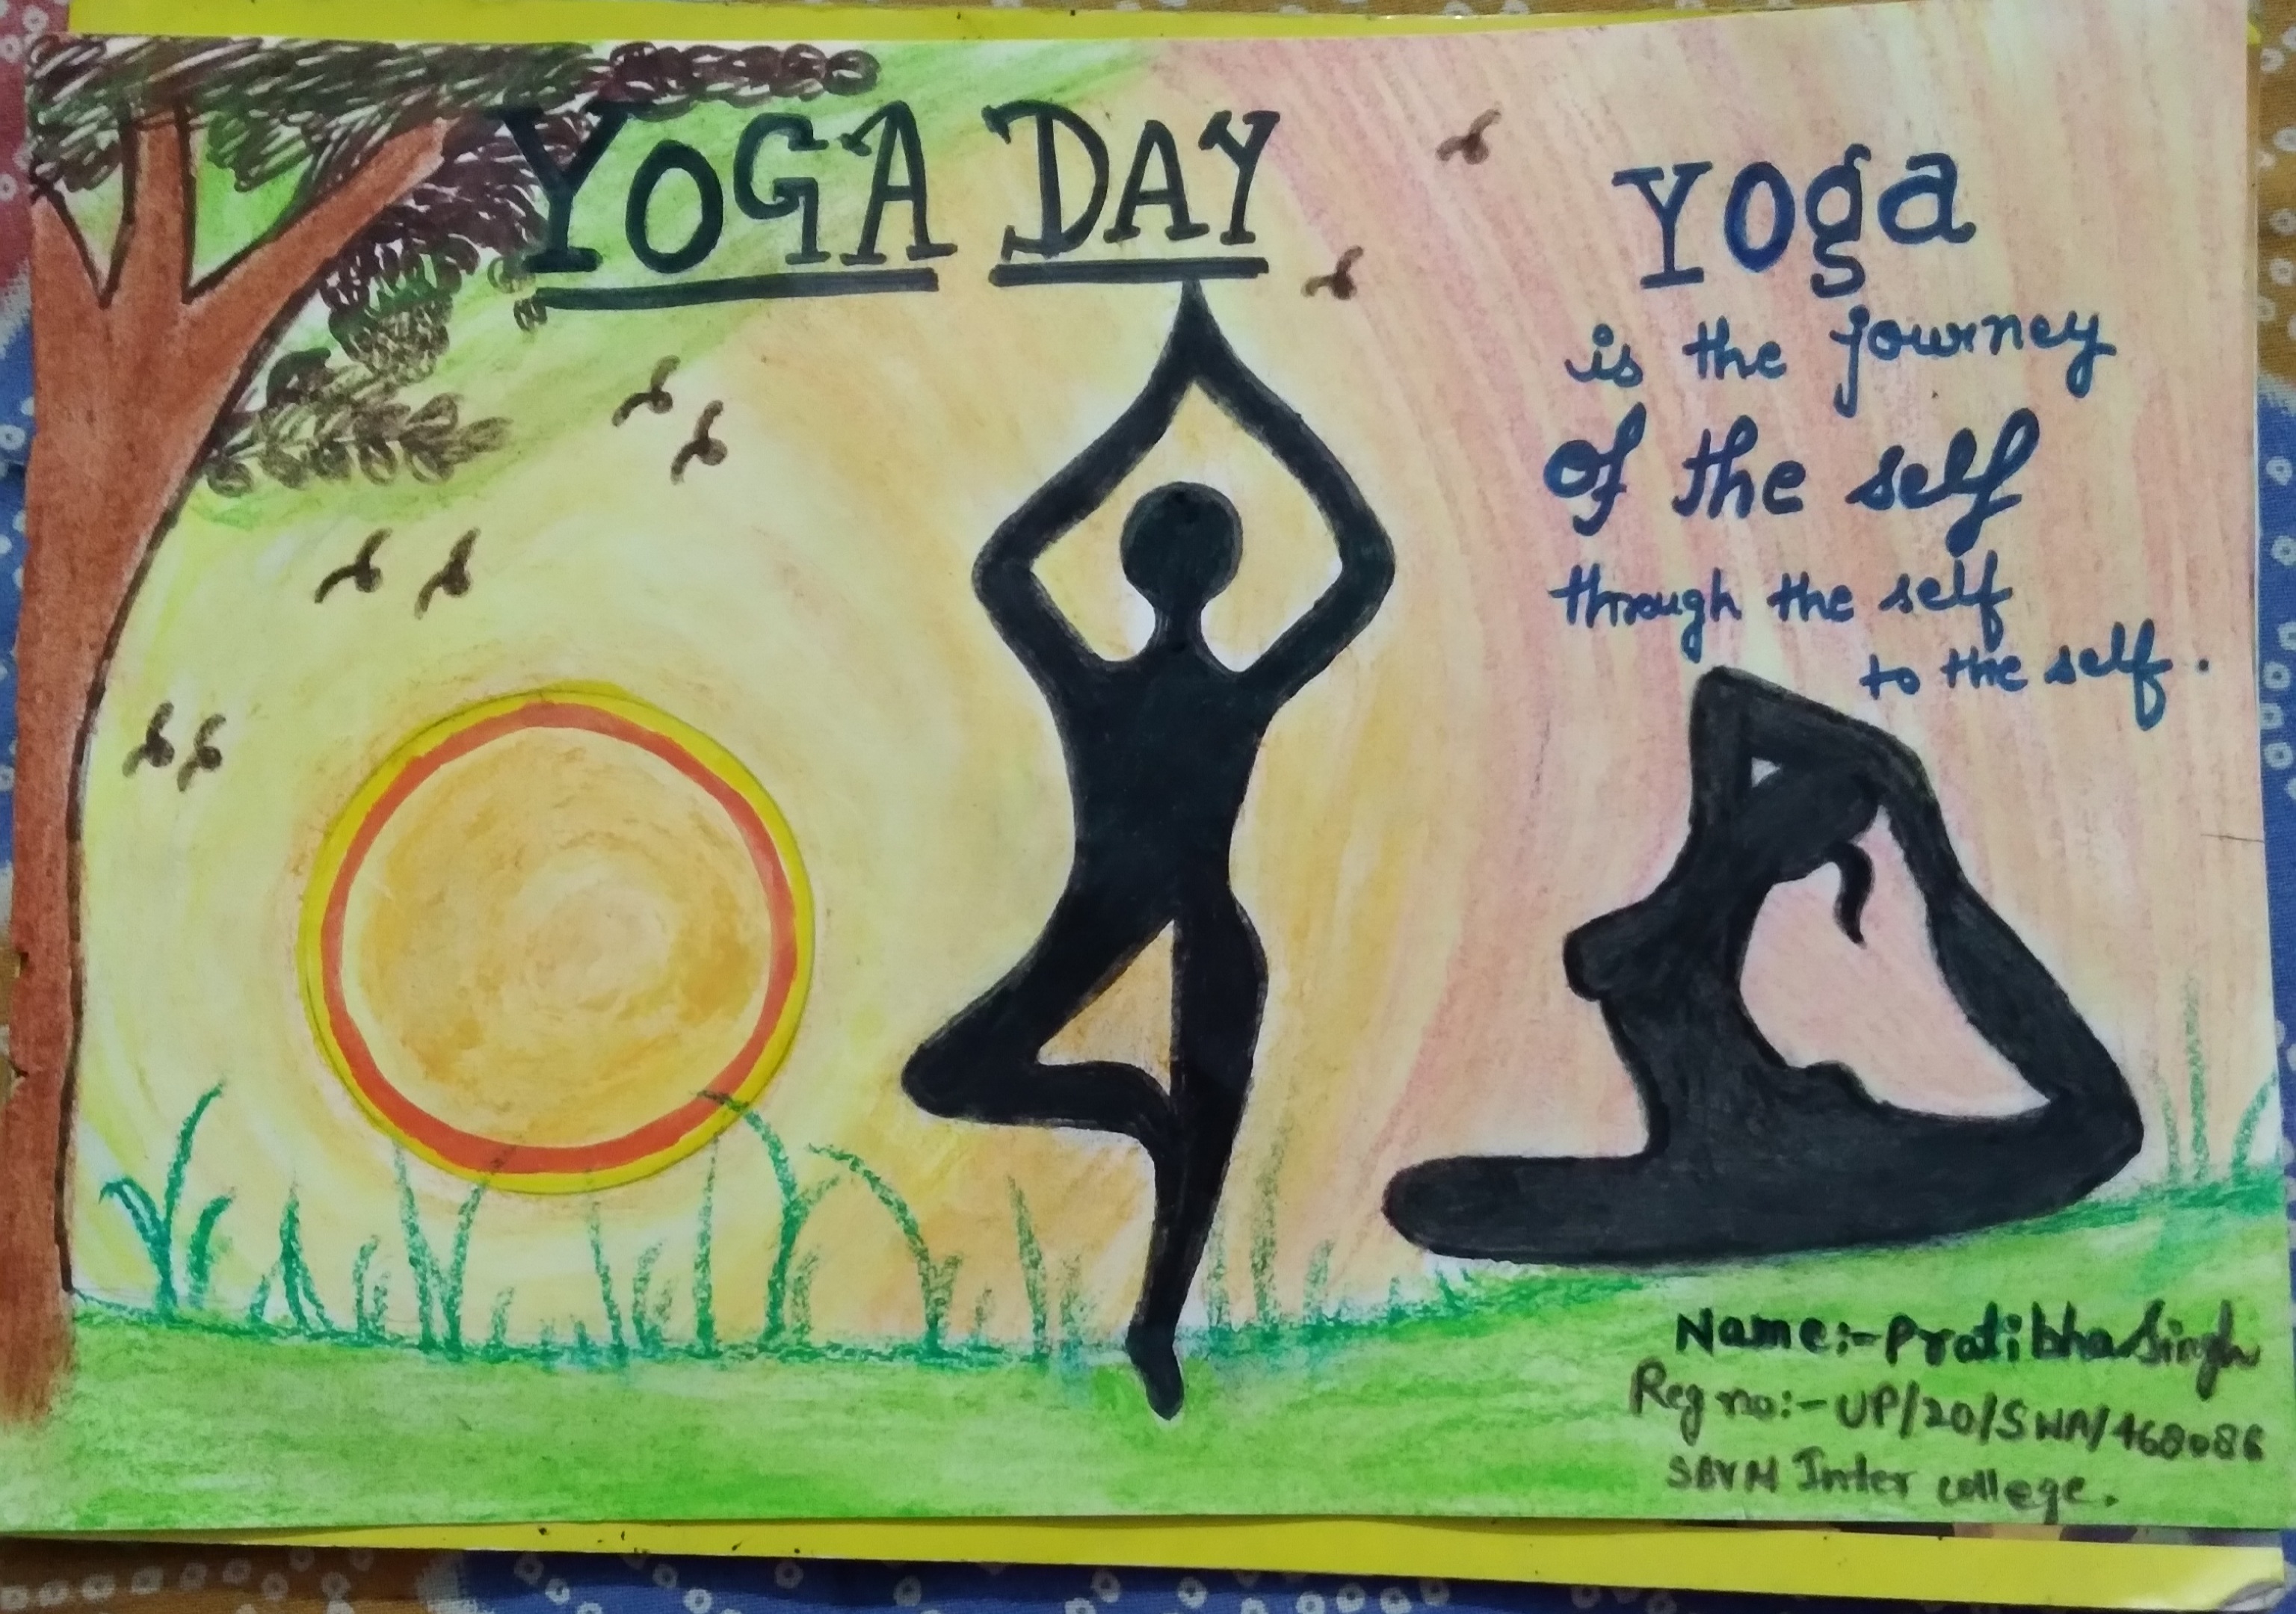 YOGA DAY
Yoga
is the journey
of the self
through the self
to the self.
Name:- Pratibha Singh
Reg no:- UP/20/SWA/468086
SBVM Inter college.